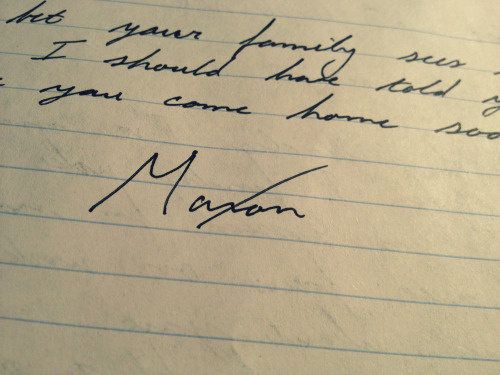 bet your family sees
I should have told
you come home soo
Maxon